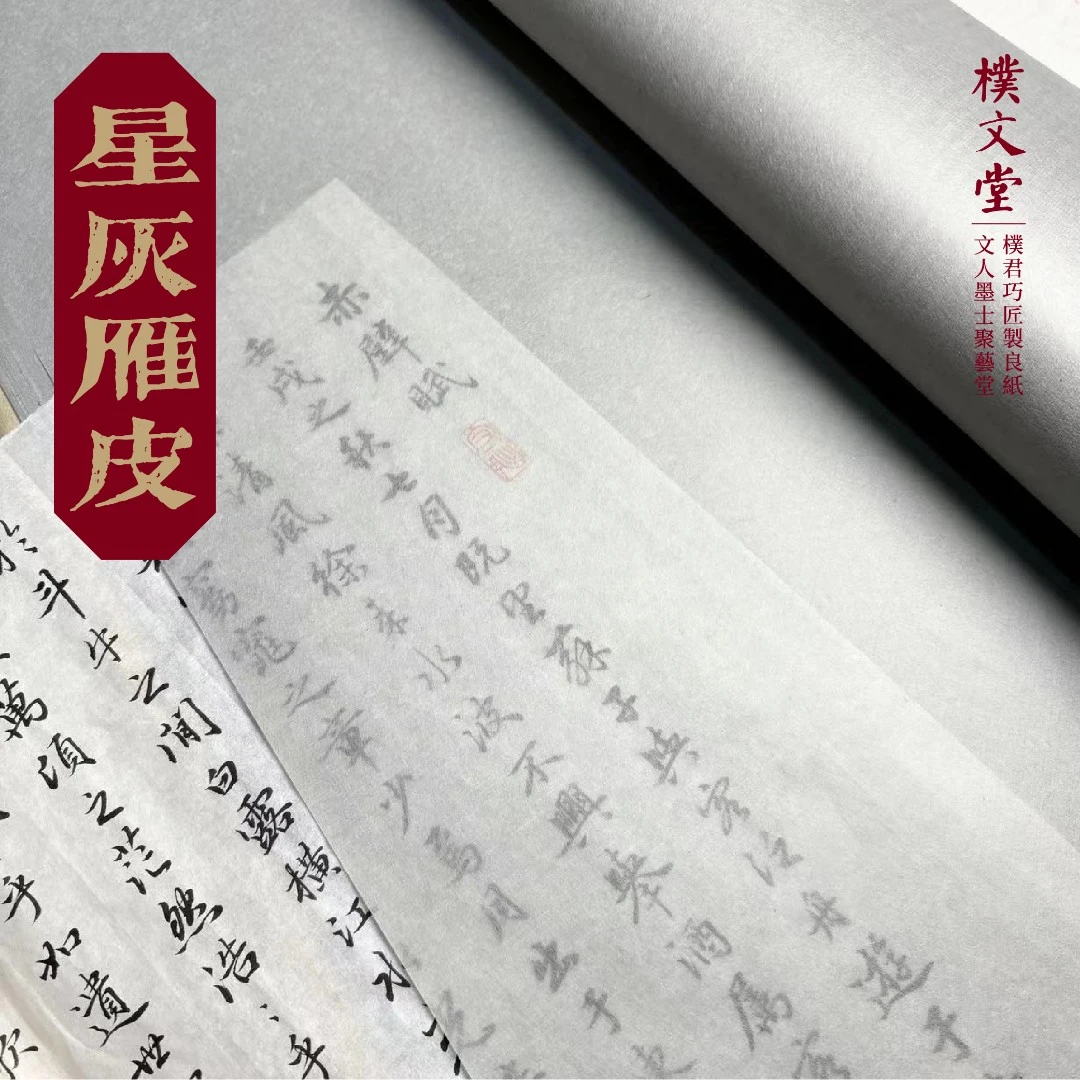 星灰雁皮
樸文堂
樸君巧匠製良紙
文人墨士聚藝堂
赤壁賦
壬戌之秋七月既望蘇子與客泛舟遊于
清風徐来水波不興舉酒屬客
窈窕之章少焉月出于東
於斗牛之间白露橫江水
萬頃之茫然浩〻乎
乎如遺世